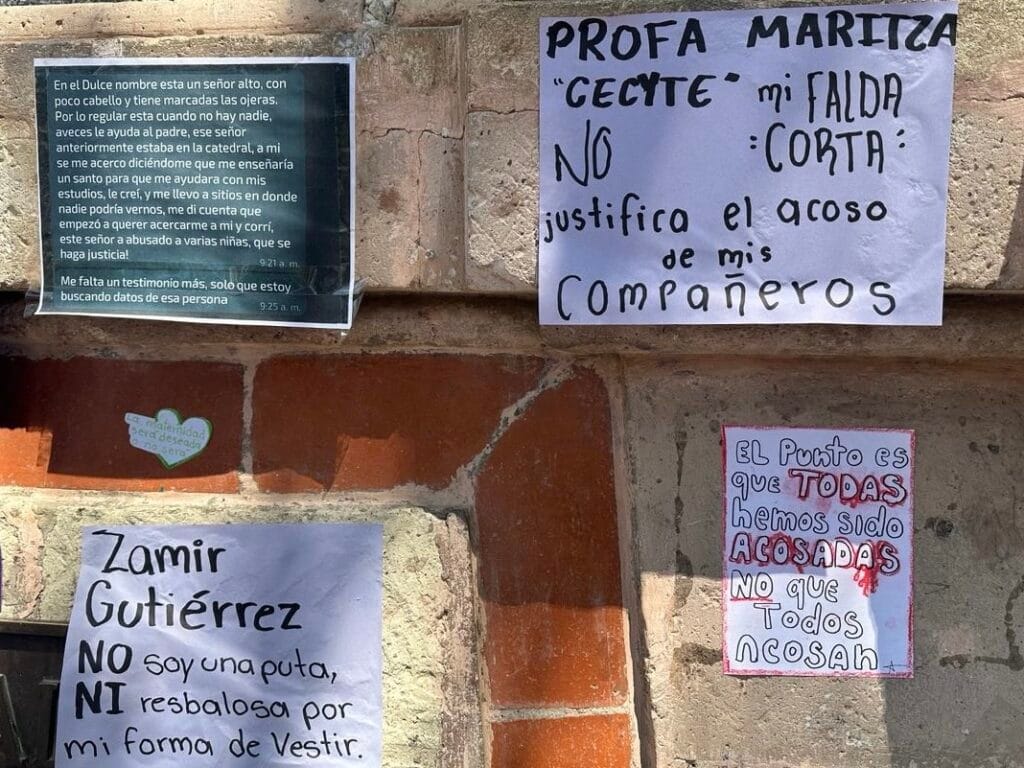 En el Dulce nombre esta un señor alto, con
poco cabello y tiene marcadas las ojeras.
Por lo regular esta cuando no hay nadie,
aveces le ayuda al padre, ese señor
anteriormente estaba en la catedral, a mi
se me acerco diciéndome que me enseñaría
un santo para que me ayudara con mis
estudios, le creí, y me llevo a sitios en donde
nadie podría vernos, me di cuenta que
empezó a querer acercarme a mi y corrí,
este señor a abusado a varias niñas, que se
haga justicia!
9:21 a. m.
Me falta un testimonio más, solo que estoy
buscando datos de esa persona
9:25 a. m.
PROFA MARITZA
"CECYTE" mi FALDA
NO :CORTA:
justifica el acoso
de mis
Compañeros
La maternidad
será deseada
o no será
EL Punto es
que TODAS
hemos sido
ACOSADAS
NO que
Todos
Acosan
Zamir
Gutiérrez
NO soy una puta,
NI resbalosa por
mi forma de Vestir.